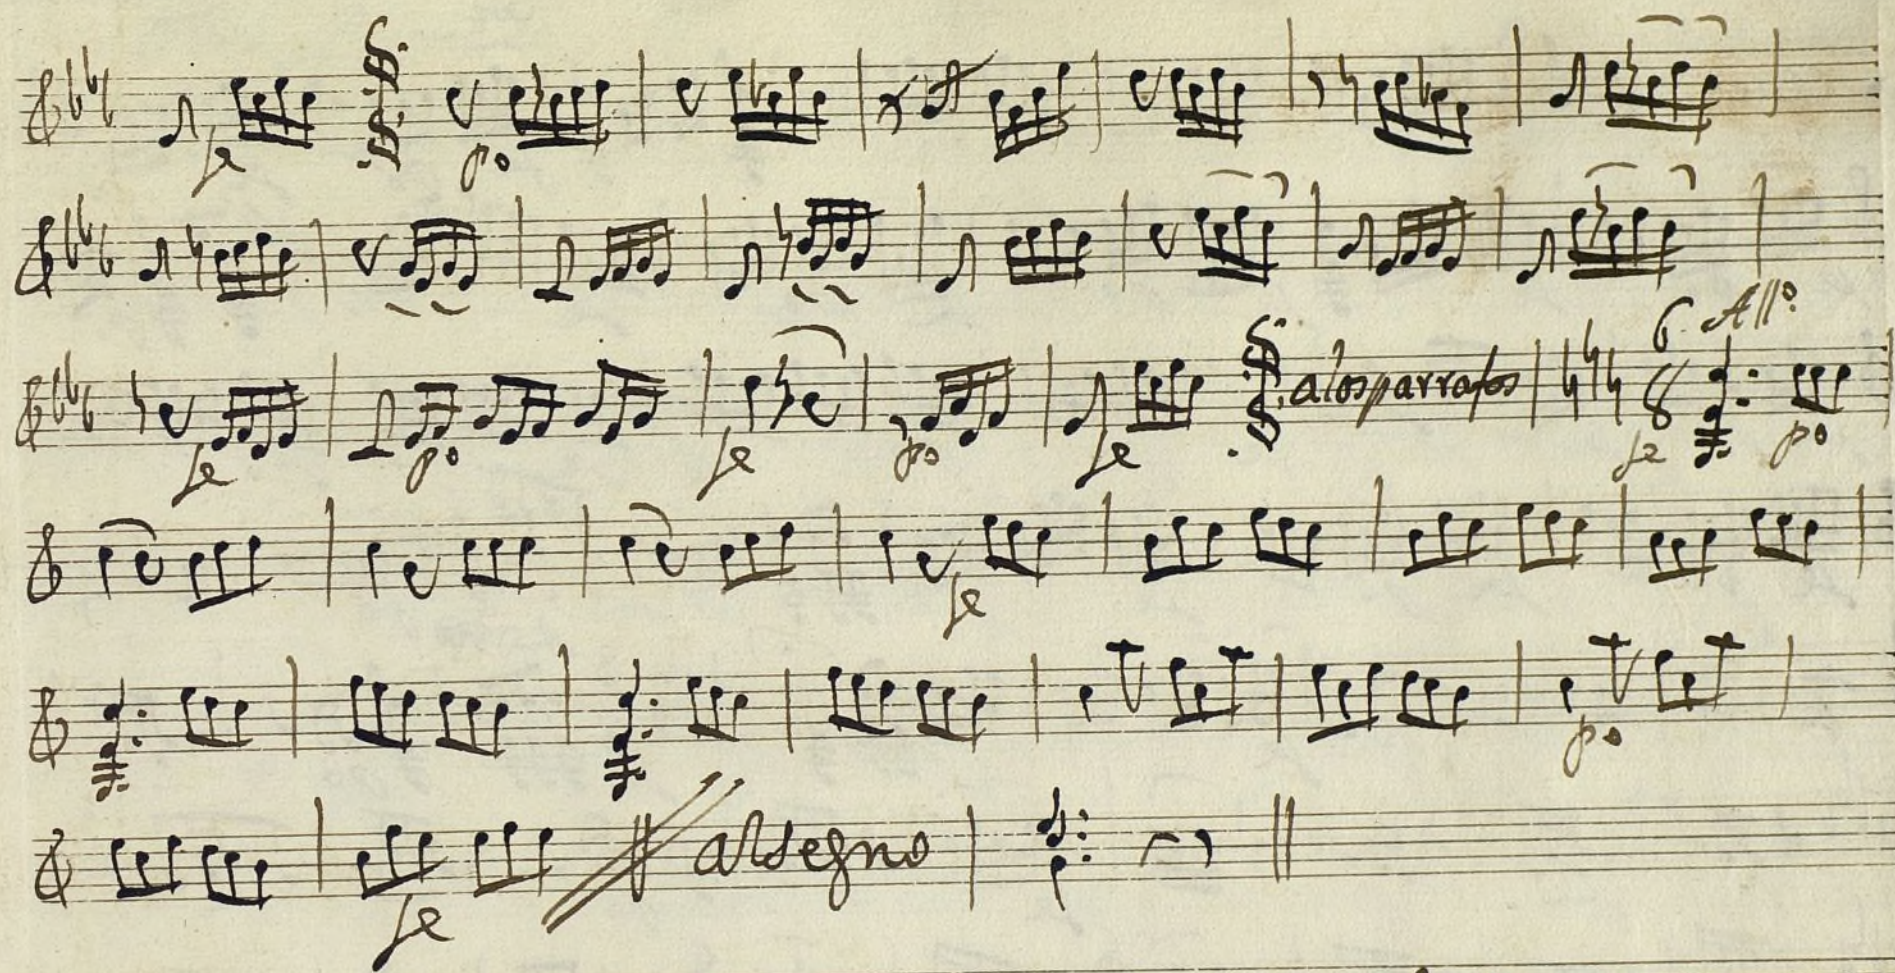 fe po
Allo
fe po fe po fe alosparrafos 6 8 fe po
fe
po
fe al segno